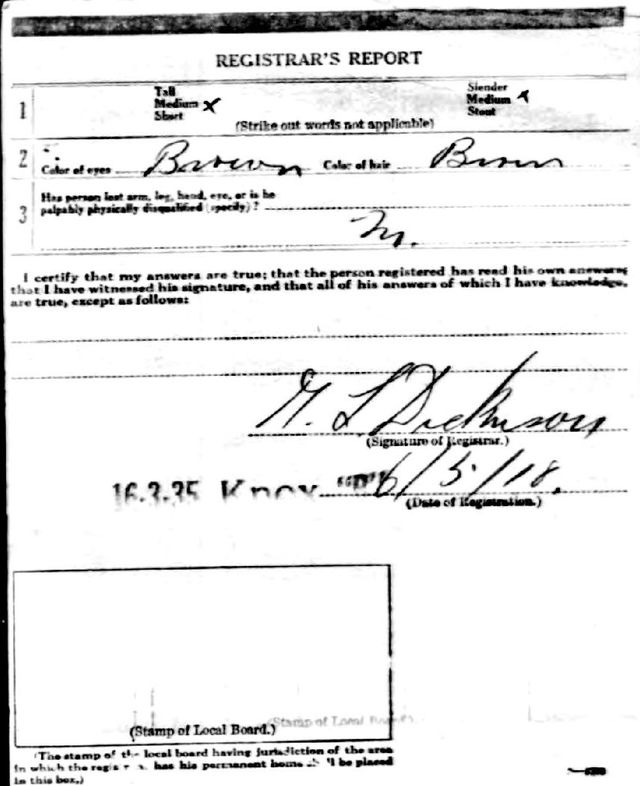 REGISTRAR'S REPORT
1
Tall
Medium x
Short
Slender
Medium x
Stout
(Strike out words not applicable)
2
Color of eyes Brown Color of hair Brown
3
Has person lost arm, leg, hand, eye, or is he
palpably physically disqualified (specify)?
I certify that my answers are true; that the person registered has read his own answers;
that I have witnessed his signature, and that all of his answers of which I have knowledge,
are true, except as follows:
L Dickinson
(Signature of Registrar.)
16.3.35 Knox 6/5/18.
(Date of Registration.)
(Stamp of Local Board.)
(Stamp of Local Board.)
(The stamp of the local board having jurisdiction of the area
in which the has his permanent home be placed
in this box.)